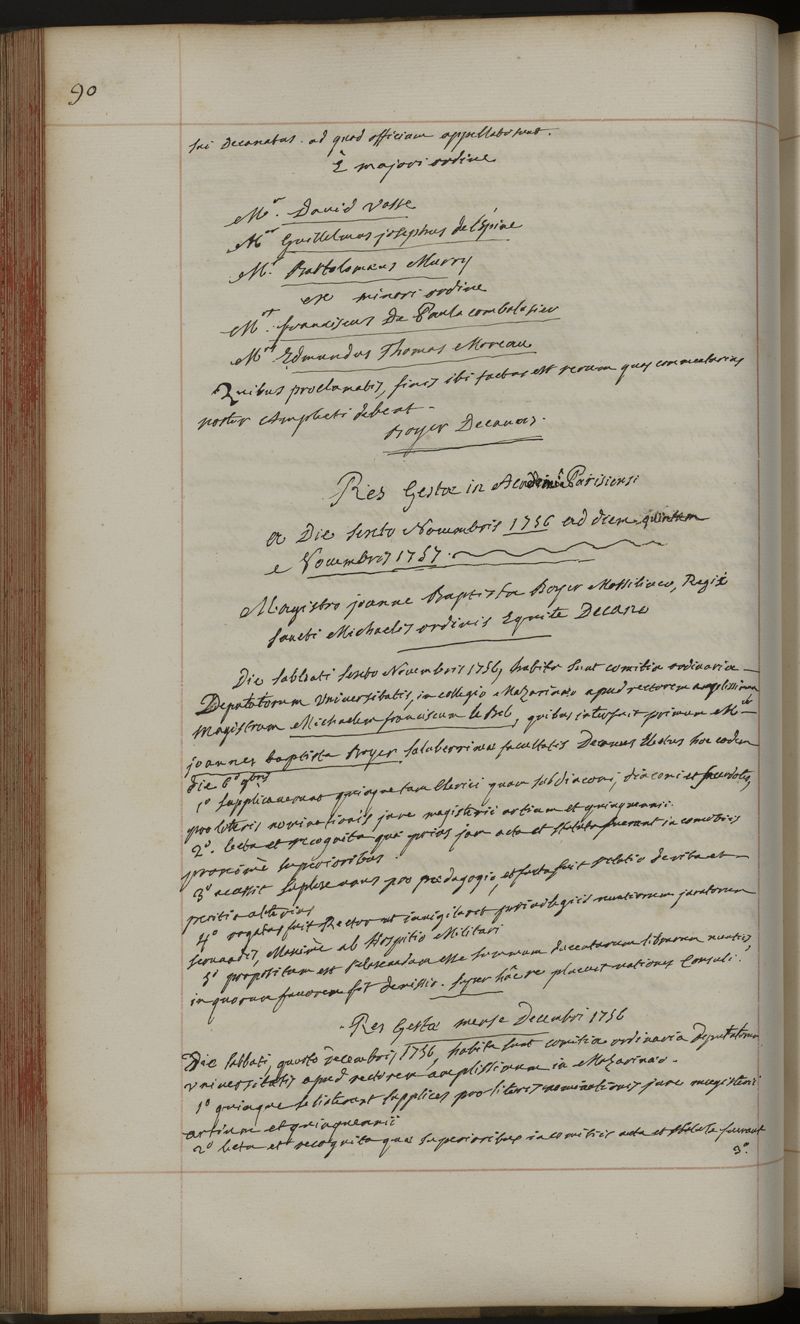 90
sui Decanatus. ad quod officium appellati sunt.
E majori ordine
Mor. David Vasse
Mor Guillelmus josephus de l'Epine
Mor Bartolomaeus Murry
ex minori ordine
Mor. franciscus De Paula combalusier
Mor Edmundus Thomas Moreau
Quibus proclamatis, finis ibi factus est rerum quas commentarius
noster Amplecti debeat.
Boyer Decanus.
Res Gestæ in Academiâ Parisiensi
a Die sexto Novembris 1756 ad diem quintam
Novembris 1757.
Magistro joanne Baptista Boyer Massiliaeo, Regii
sancti Michaelis ordinis Equite Decano
Die sabbati sexto Novembris 1756, habita sunt comitia ordinaria
Deputatorum Universitatis, in collegio Mazarinaeo apud rectorem amplissimum
Magistrum Michaelem franciscum le Bel, quibus interfuit primum Mor
joannes baptista Boyer saluberrimae facultatis Decanus Electus hoc eodem
die 6o 9bris
1o supplicaverunt quinque tam Clerici quam subdiaconi, diaconi et sacerdotes,
pro literis nominationis jure magisterii artium et quinquennii.
2o. lecta et recognita quae prius jam acta et statuta fuerant in comitiis
proximè superioribus.
3o accessit supplex unus pro paedagogio, et facta fuit relatio de vita et
peritia alterius
4o rogatus fuit Rector ut invigilaret privilegiis nuntiorum juratorum
servandis, Maximè ab Hospitio Militari
5o propositum est esse summum ducentarum librarum nuntiis,
in quorum favorem fit demissio. super hâc re placuit rationes Consuli.
Res Gestæ mense Decembri 1756
Die sabbati, quarto decembris 1756, habita sunt comitia ordinaria Deputatorum
Universitatis apud rectorem amplissimum in Mazarinaeo.
1o quinque se listerunt supplices pro literis nominationis jure magisterii
artium et quinquennii
2o lecta et recognita quae superioribus in comitiis acta et statuta fuerant
3o.